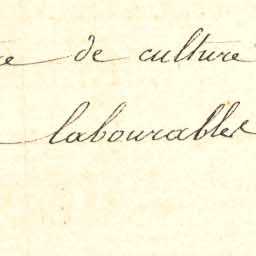 de culture
labourables